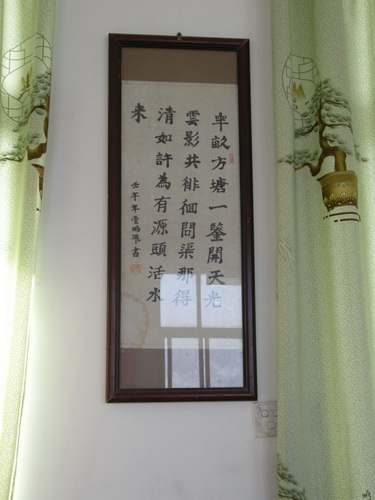 半畝方塘一鑒開天光
雲影共徘徊問渠那得
清如許為有源頭活水
来
壬午年書